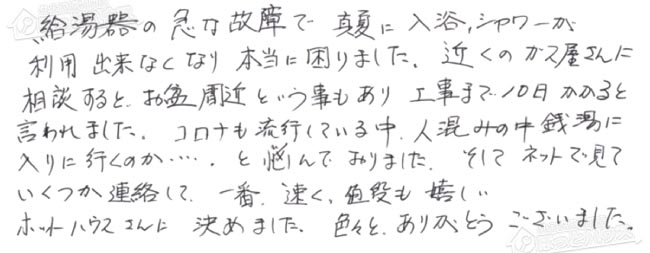 給湯器の急な故障で 真夏に 入浴,シャワーが
利用 出来なくなり 本当に困りました. 近くの ガス屋さんに
相談すると、お盆間近という事もあり 工事まで10日かかると
言われました. コロナも流行している中. 人混みの中 銭湯に
入りに行くのか‥‥. と悩んでおりました. そして ネットで見て
いくつか連絡して. 一番. 速く、値段も嬉しい
ホットハウスさんに 決めました. 色々と、ありがとう ございました.